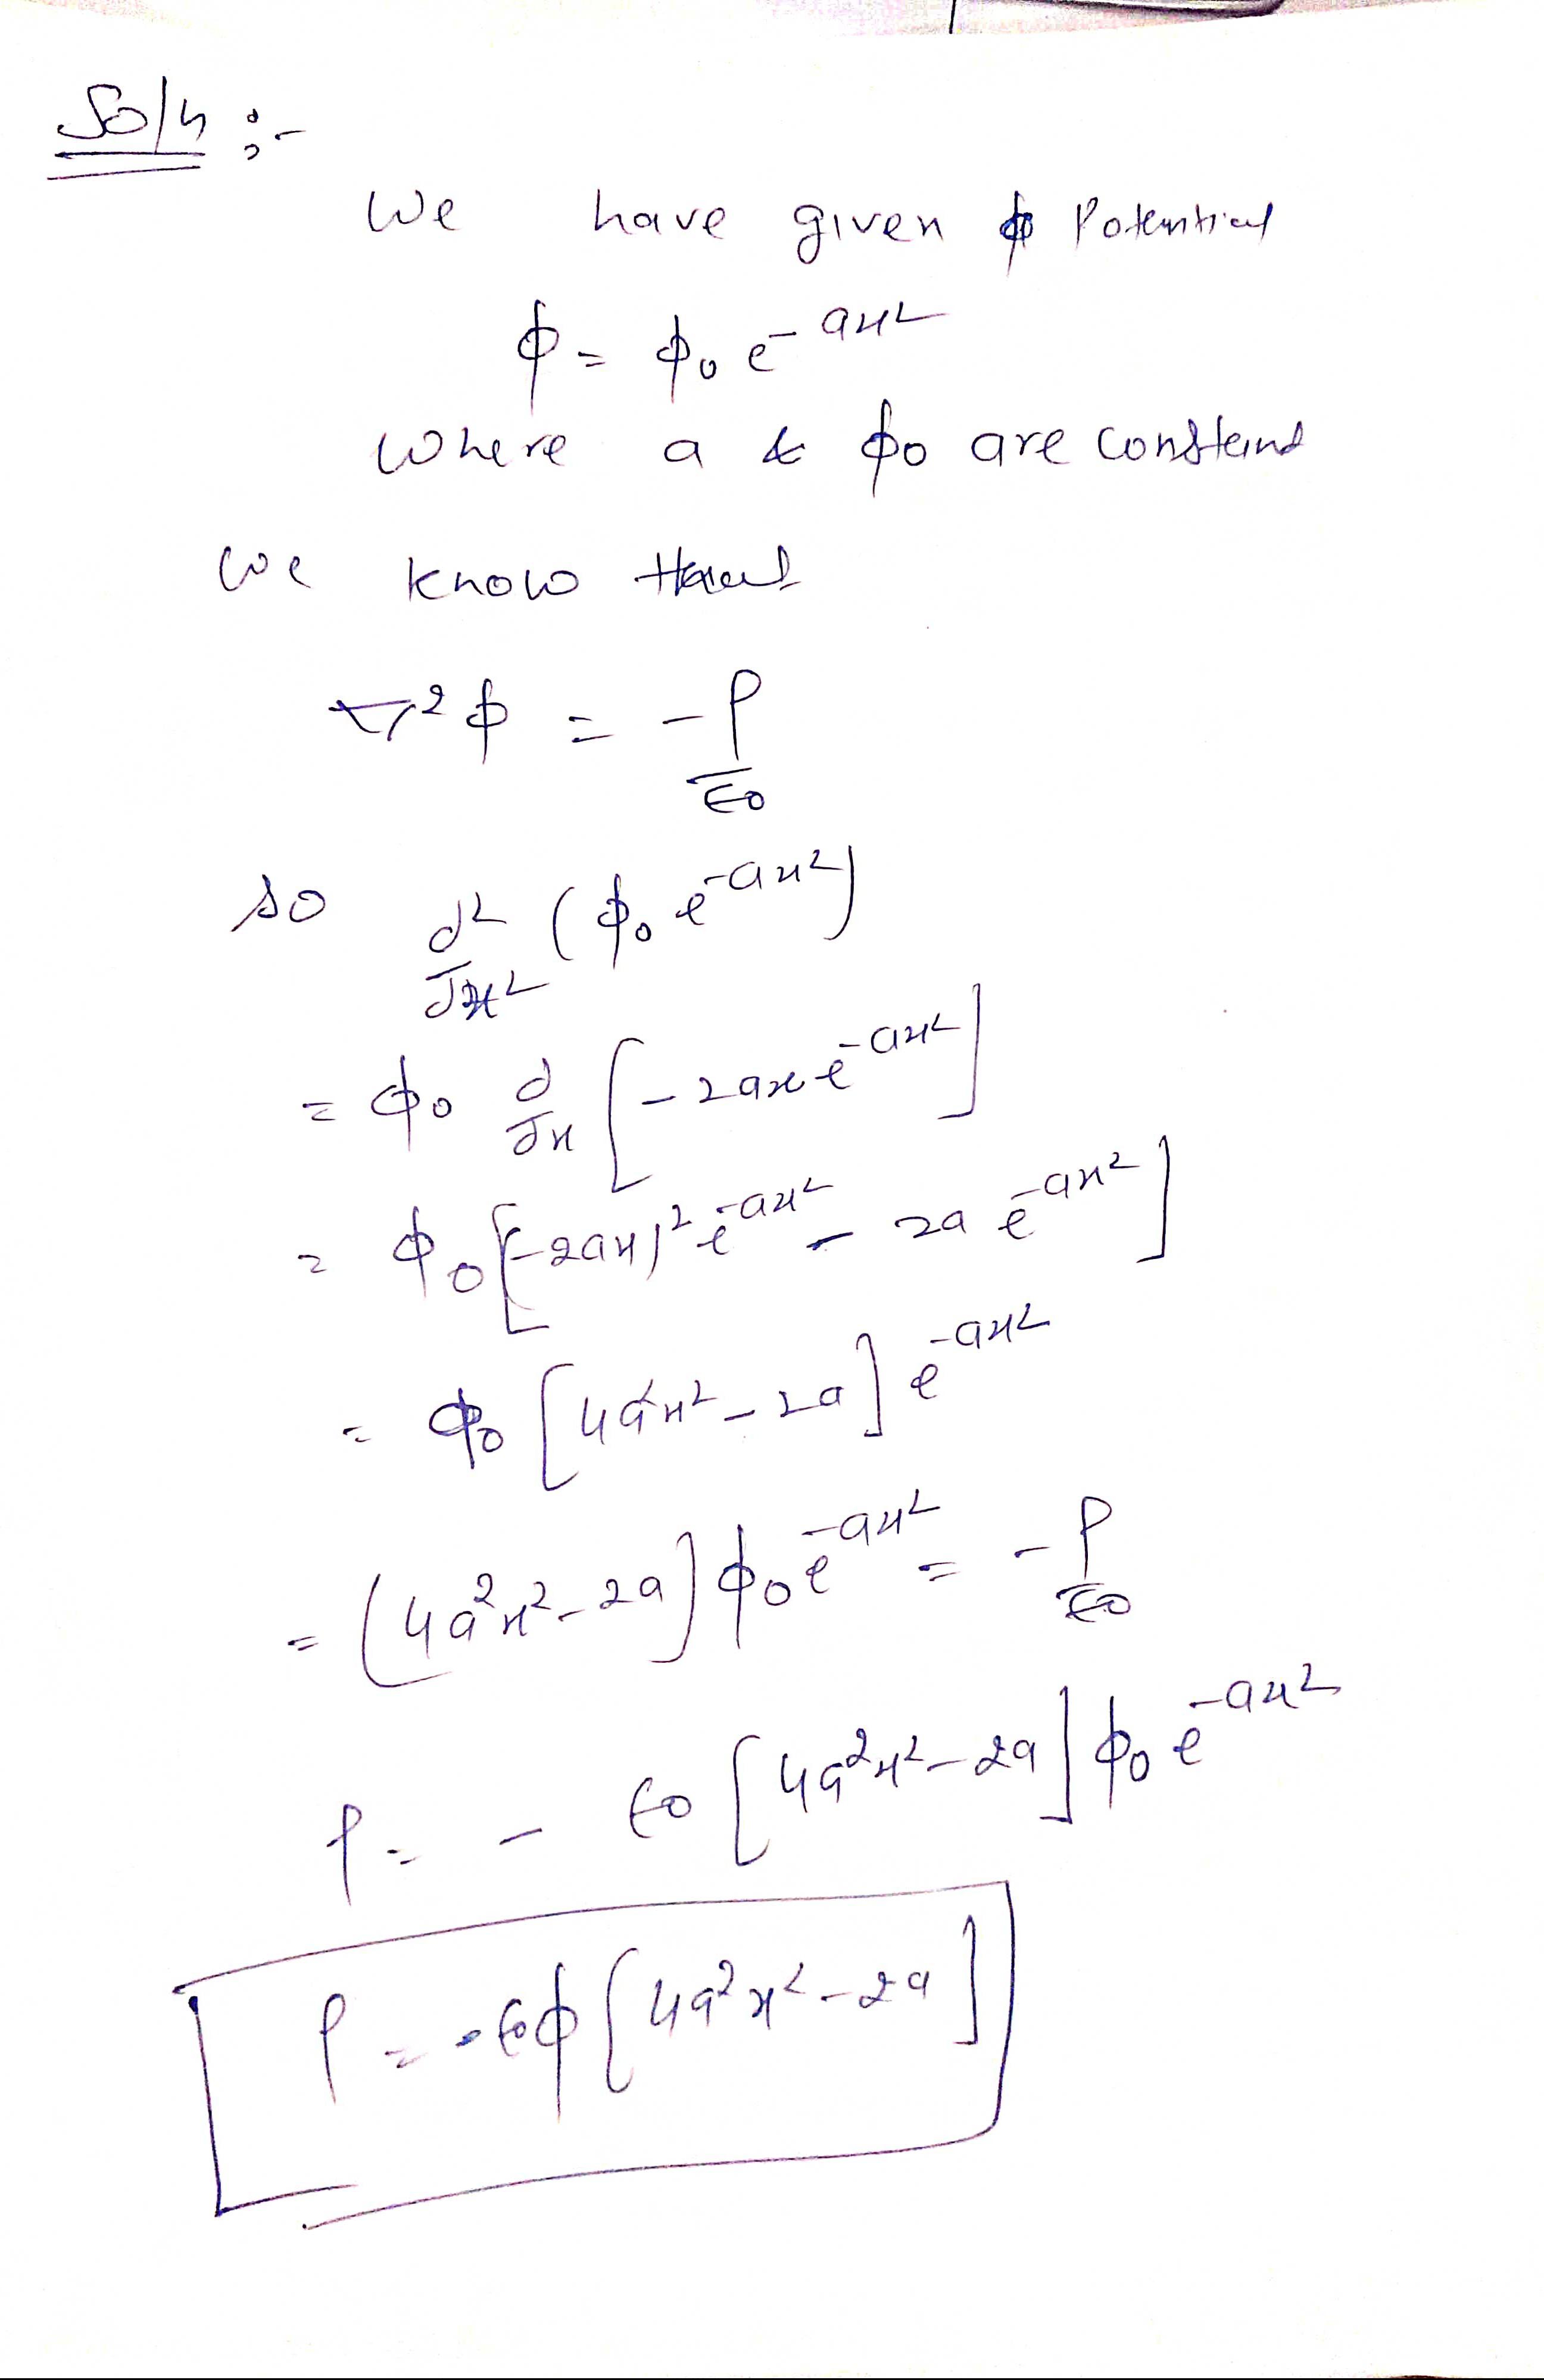 Soln :-
We have given ϕ Potential
ϕ = ϕ₀ e^-ax²
where a & ϕ₀ are constant
we know that
∇²ϕ = -ρ/ε₀
so d²/dx² (ϕ₀ e^-ax²)
= ϕ₀ d/dx [-2ax e^-ax²]
= ϕ₀ [(-2ax)² e^-ax² - 2a e^-ax²]
= ϕ₀ [4a²x² - 2a] e^-ax²
= (4a²x² - 2a) ϕ₀ e^-ax² = -ρ/ε₀
ρ = - ε₀ [4a²x² - 2a] ϕ₀ e^-ax²
ρ = -ε₀ϕ [4a²x² - 2a]